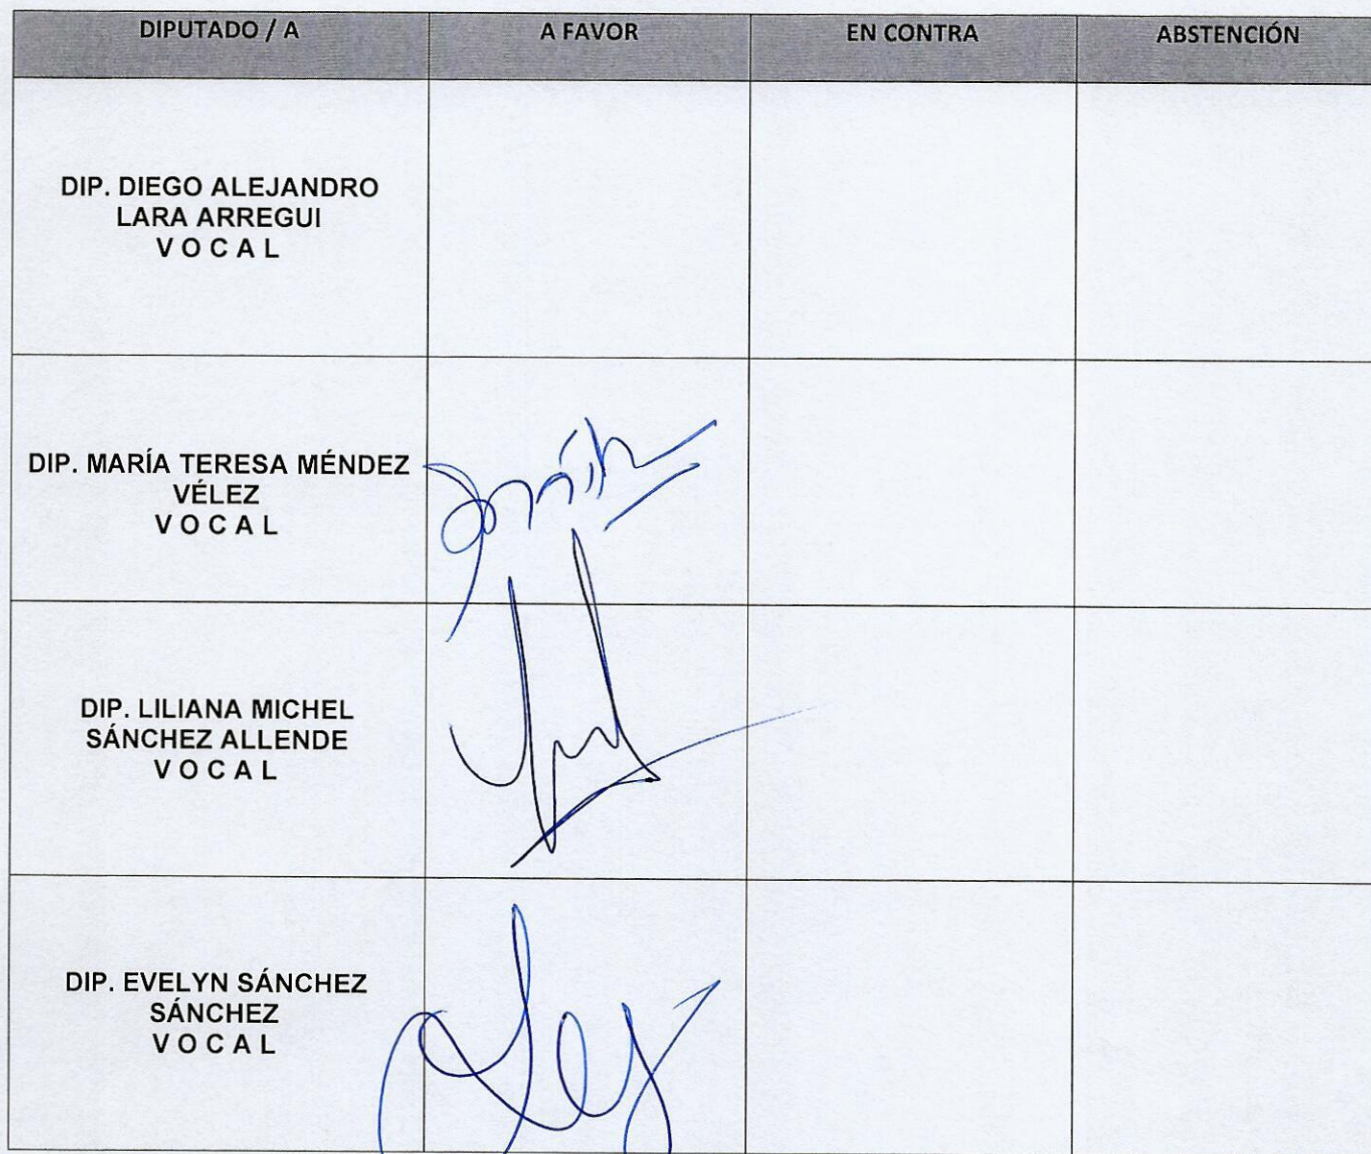 DIPUTADO / A A FAVOR EN CONTRA ABSTENCIÓN
DIP. DIEGO ALEJANDRO
LARA ARREGUI
V O C A L
DIP. MARÍA TERESA MÉNDEZ
VÉLEZ
V O C A L
DIP. LILIANA MICHEL
SÁNCHEZ ALLENDE
V O C A L
DIP. EVELYN SÁNCHEZ
SÁNCHEZ
V O C A L